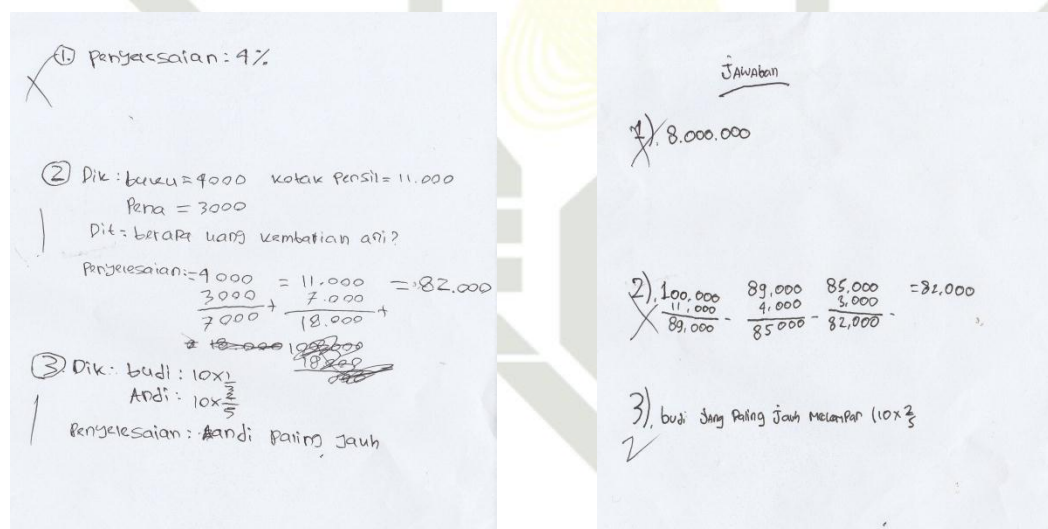 1. Penyelesaian: 4%
2 Dik: buku = 4000 kotak Pensil = 11.000
Pena = 3000
Dit: berapa uang kembalian ani?
Penyelesaian: = 4000 = 11.000 = 82.000
3000 + 7.000 +
7000 18.000
18.000
3 Dik: budi: 10×1/2
Andi: 10×2/5
Penyelesaian: Aandi paling Jauh
JAWAban
1). 8.000.000
2). 100,000 89,000 85,000 = 82,000
11,000 - 4,000 - 3,000 -
89,000 85000 82,000
3). budi yang Paling Jauh Melempar (10×2/5